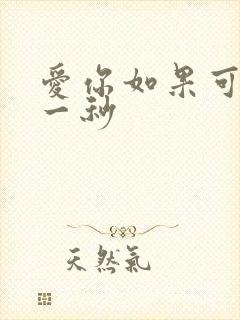 愛你如果可
一秒
天然氣